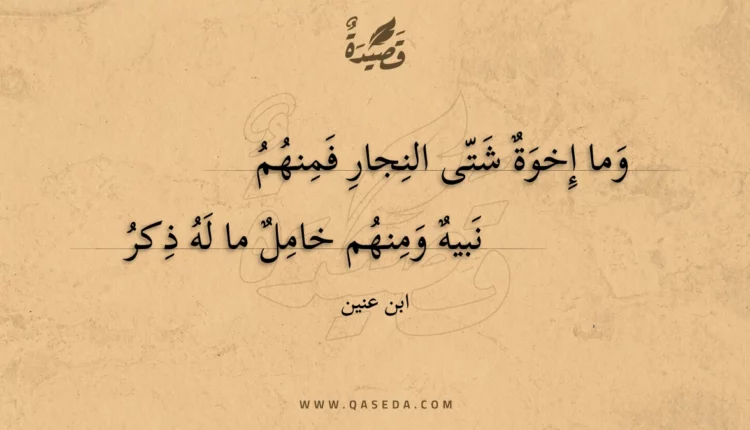 قَصِيدَةٌ
وَما إِخوَةٌ شَتّى النِجارِ فَمِنهُمُ
نَبيهٌ وَمِنهُم خامِلٌ ما لَهُ ذِكرُ
ابن عنين
WWW.QASEDA.COM